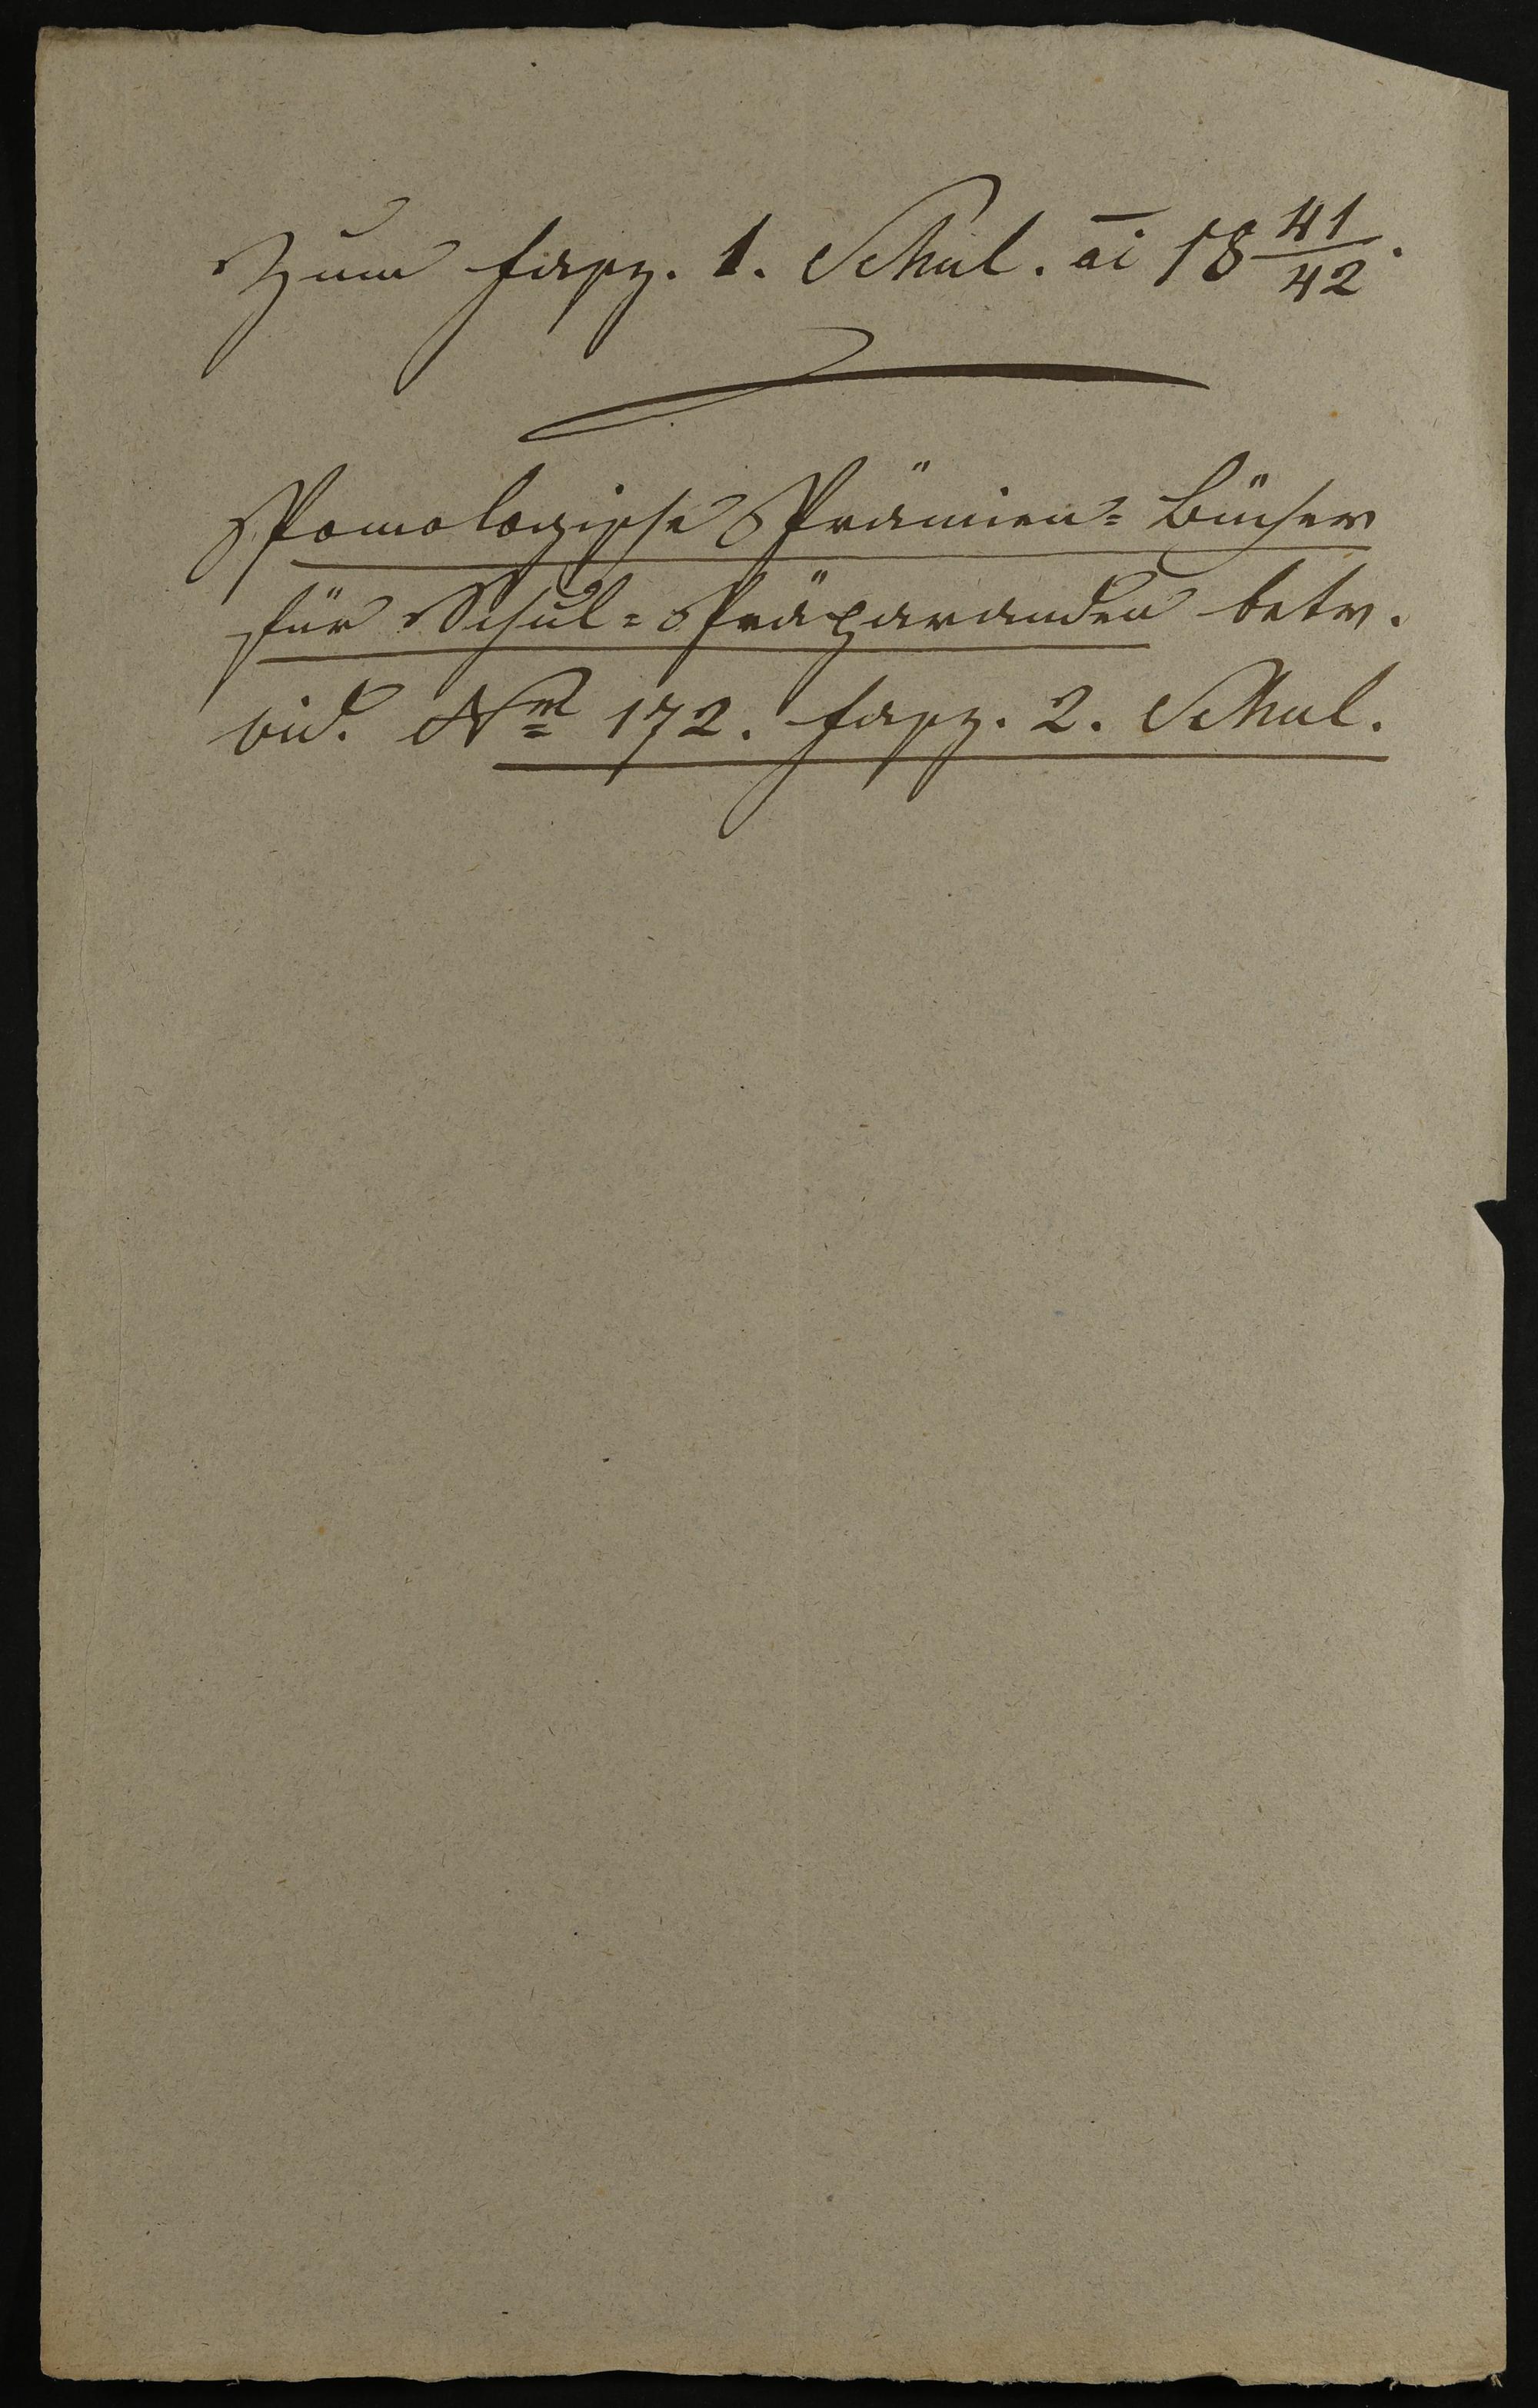 Zum fasz. 1. Schul. āi 18 41/42.
Pomologische Prämien= Bücher
für Schul= Präparanden betr.
vid. Nr 172. fasz. 2. Schul.